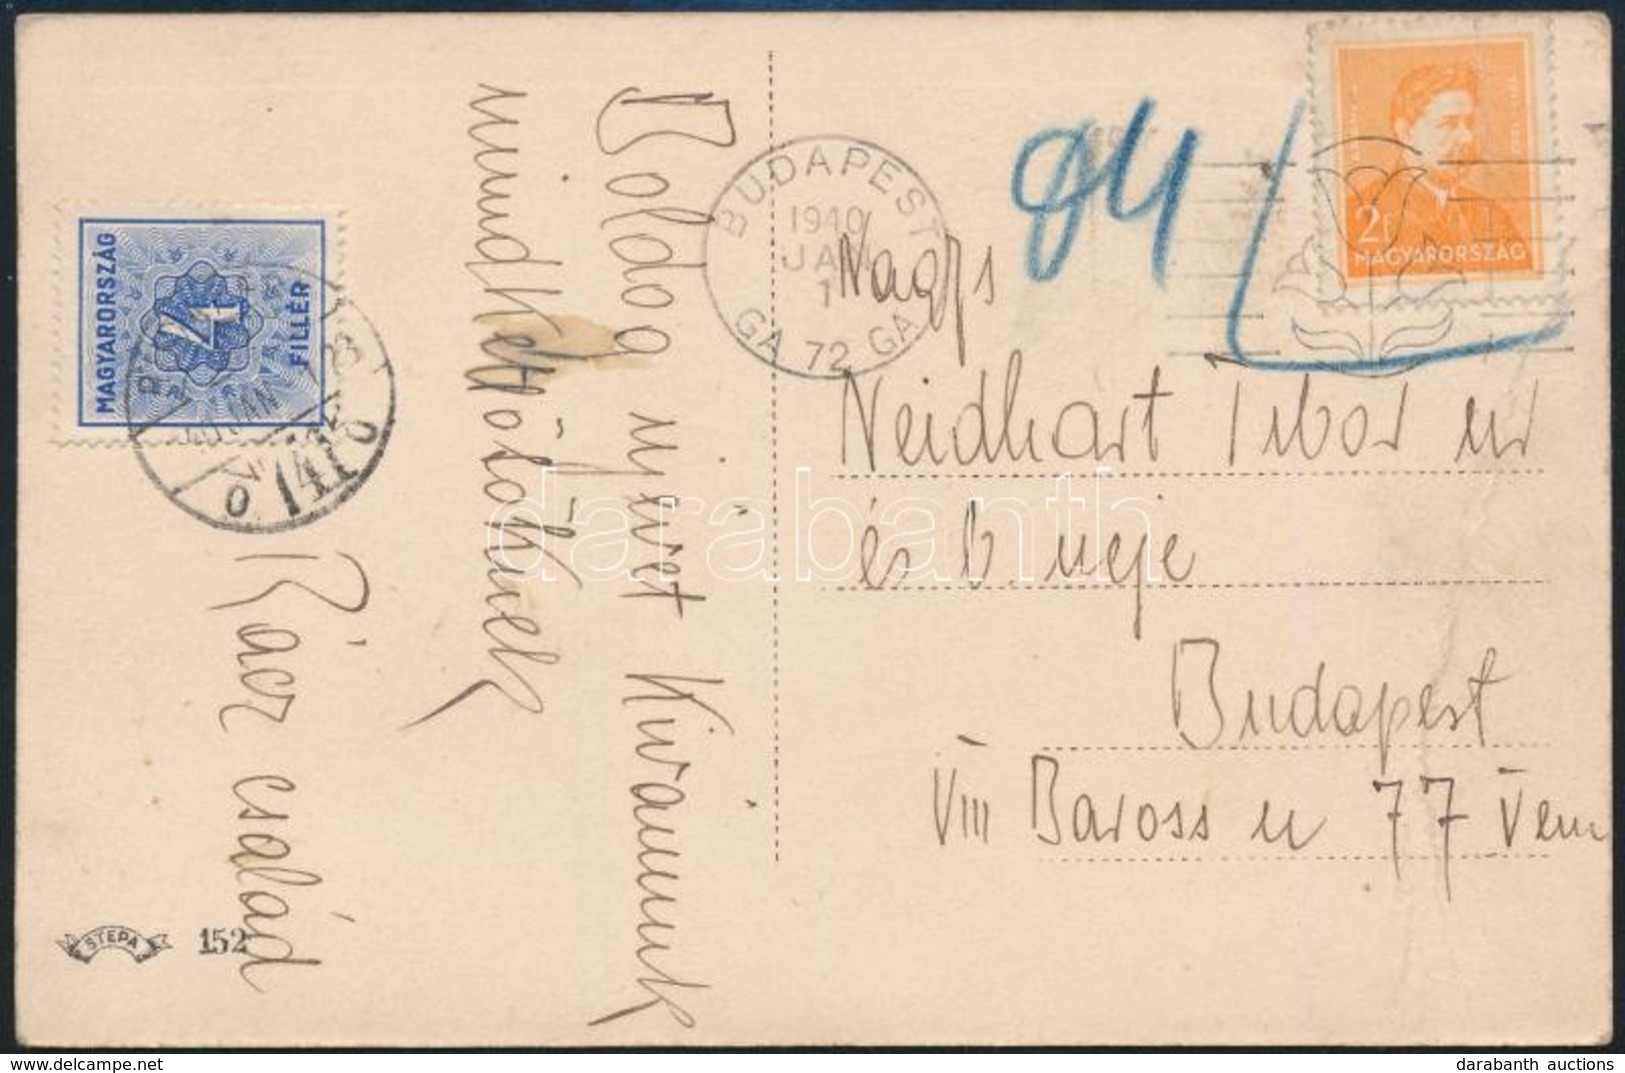 Boldog újévet kivánunk
mindkettőlöknek
Rácz család
MAGYARORSZÁG
4
FILLÉR
STEPA 152
BUDAPEST
1940
JAN
1
GA 72 GA
84
2f
MAGYARORSZÁG
Nagys
Neidhart Tibor úr
és b. neje
Budapest
VIII Baross u 77 Vem
darabanth
darabanth auctions